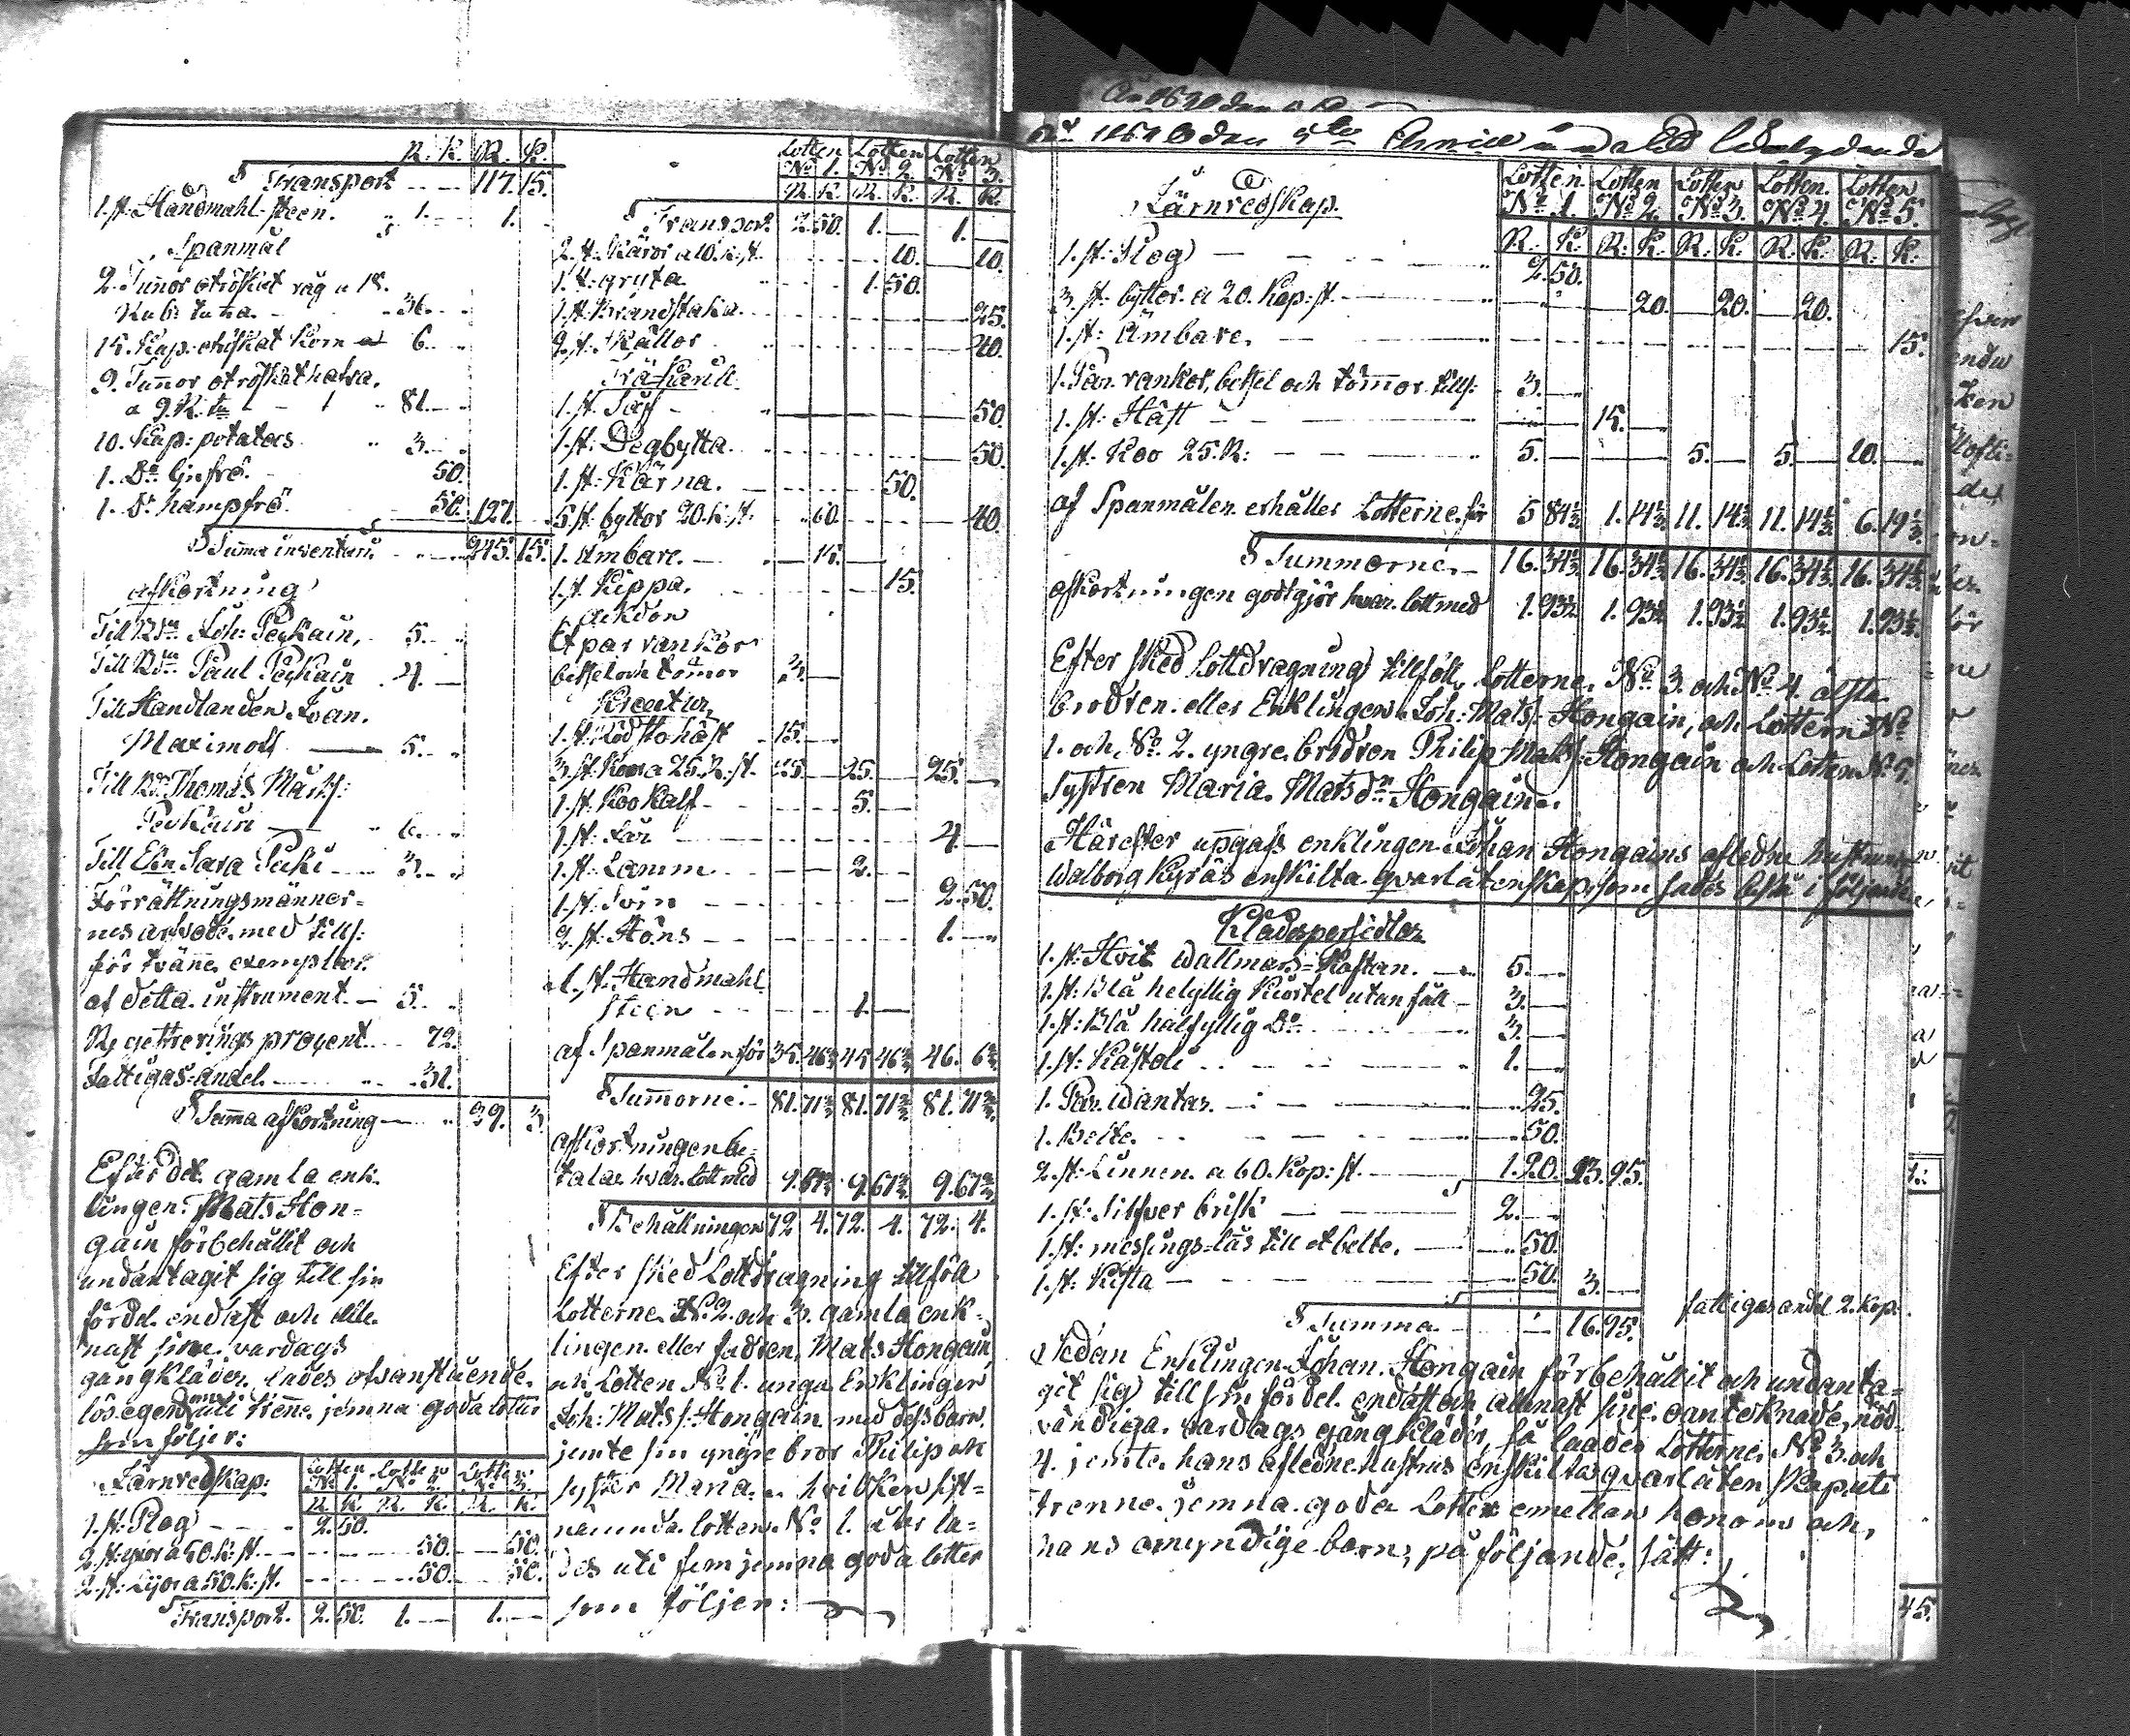 R. K. R. K.
S Transport - - - 117. 15.
1. st: Handmahl-steen. " 1. - - 1.
Spanmål
2. Tunnor otröskat råg a 18.
Rub: tuna. - - 36. - "
15. Kap. otröskat Korn a 6. - "
9. Tunnor otröskat hafra.
a 9. R. tn - - 81. - "
10. Kap: potates " 3. - "
1. Do linfrö. - 50.
1. Do hampfrö. 50. 127. - -
S Suma inventari: - - - 245. 15.
afkortning
Till Bdn Joh: Peykain, - 5. - "
Till Bdn Paul Peykain . 4. —
Till Handlanden Ivan.
Maximoff — 5. - "
Till Bd: Thomas Matss:
Peykain — " 6. - "
Till Enk. Sara Puki - - 3. - "
Förrättningsmänner=
nes arfvode med tills:
för tvänne exemplar.
af detta instrument. — 5. - "
Registrerings procent. - - 72.
Fattigas-andel. - - - - 31.
S Suma afkortning - - " 29. 3.
Efter det gamla enk-
lingen Mats Hon=
gain förbehållit och
undantagit sig till sin
fördel endast och alle-
nast sine vardags
gångkläder, lades ofvanstående
lösegendom uti trenne jemna goda lotter
som följer:
Järnredskap: Lotten No 1. Lotten No 2. Lotten No 3.
R. K. R. K. R. K.
1. st: Plog - - - 2. 50.
2. st: yxor a 50. k: st. - - - - - 50. - - 50.
2. st: Lijor a 50. k: st. - - - - - 50. - - 50.
S Transport. 2. 50. 1. — 1. —
Lotten No 1. Lotten No 2. Lotten No 3.
R. K. R. K. R. K.
S Transport 2. 50. 1. — 1. —
2. st: Skäror a 10. k: st. - - - - 10. — 10.
1. st: gryta - - - - 1. 50.
1. st: Brandstaka. - - - - - 25.
2. st: Skållor - - - - 40.
Trä-Käril
1. st: Såf - " — — — 50.
1. st: Degbytta. - - - - - 50.
1. st: Kärna. - - - - 50.
5. st: byttor 20. k: st. - - 60. - - - - — 40.
1. Ämbare. — " 15. —
1. st: Kippa. - - - - 15.
Åkdon
Et par rankor
betsel och tömor 3. —
Kreatur
1. st: Röd Stohäst " 15. —
3. st: Koor a 25. R: st. 25. — 25. — 25. —
1. st: Koo Kalf - - - - 5. —
1. st: Får - - - - - 4. —
1. st: Lamm - - - 2. —
1. st: Svin - - - - - 2. 50.
2. st: Höns - - - - - 1. - "
1. st: Handmahl
steen - - - - 1. —
af Spanmålen för 35. 46⅔ 45. 46⅔ 46. 6⅔
S Summorne: - 81. 71⅔ 81. 71⅔ 81. 71⅔
afkortningen be-
talar hvar lott med 9. 67⅔ 9. 67⅔ 9. 67⅔
S Behållningen 72. 4. 72. 4. 72. 4.
Efter sked Lottdragning tillföll
Lotterne No 2. och 3. gamla enk-
lingen eller fadren Mats Hongain
och Lotten No 1. unga Enklingen
Joh: Mats s: Hongain med dess barn
jemte sin yngre bror Philip och
syster Maria, hvilken sist=
nämnda lotten No 1. åter la=
des uti fem jemna goda lotter
som följer:
den 5te
Järnredskap. Lotten No 1. Lotten No 2. Lotten No 3. Lotten No 4. Lotten No 5.
R. K. R. K. R. K. R. K. R. K.
1. st: Plog — - - - - 2. 50.
3. st: byttor a 20. Kop: st. — - " — 20. — 20. — 20.
1. st: Ämbare. - - - - - - 15.
1. Par rankor, betsel och tömmor tills: 3. —
1. st: Häst - - - - 15. —
1. st: Koo 25. R: — - - - 5. — — 5. — 5. — 10. —
af Spanmålen erhåller Lotterne för 5 84⅓ 1. 14⅓ 11. 14⅓ 11. 14⅓ 6. 19⅓
S Summorne. - 16. 34⅓ 16. 34⅓ 16. 34⅓ 16. 34⅓ 16. 34⅓
afkortningen godtgör hvar lott med 1. 93½ 1. 93½ 1. 93½ 1. 93½ 1. 93½
Efter sked Lottdragning tillföll Lotterne No 3. och No 4. älsta
brodren eller Enklingen Joh: Mats s: Hongain, och Lotterne No
1. och No 2. yngre brodren Philip Mats s: Hongain och Lotten No 5.
systren Maria Matsdr Hongain.
Härefter uppgafs enklingen Johan Hongains aflidne hustrus
Walborg Kyräs enskilta qvarlåtenskap, som sades bestå i följande
Klädespersedlar
1. st: Hvit Wallmars=Kaftan. — 5. —
1. st: Blå helyllig Kiortel utan fåll - 3. —
1. st: Blå halfyllig Do - - - - 3. —
1. st: Kastoli - - - - 1. —
1. Par Wantar. — - — 25.
1. Bälte. - - - - 50.
2. st: Linnen a 60. Kop: st. — 1. 20. 13. 95.
1. st: Silfver brisk — - — 2. —
1. st: messings-lås till et bälte. — - - 50.
1. st: Kista — - - - - 50. 3. —
fattigas andel 2. Kop.
S Summa - - - 16. 95.
Sedan Enklingen Johan Hongain förbehållit och undanta=
git sig till sin fördel endast och allenast sine oantecknade, nöd-
vändiga vardags gångkläder, så laades Lotterne No 3. och
4. jemte hans aflidne hustrus enskilta qvarlåtenskap uti
trenne jemna goda Lotter emellan honom och
hans omyndige barn, på följande sätt:
45.